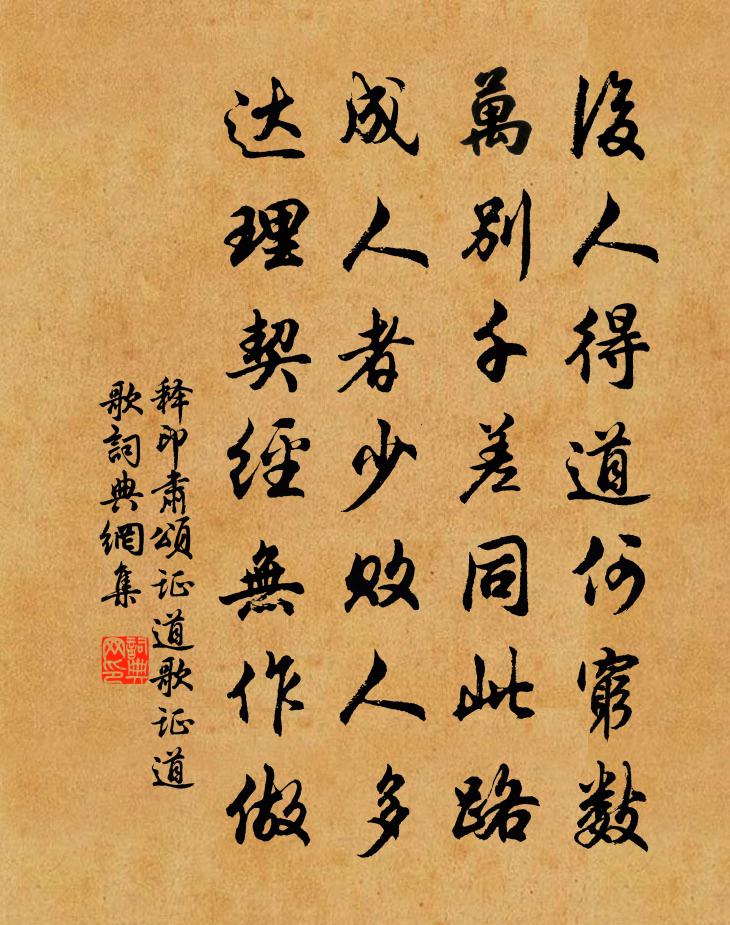 後人得道何窮数
萬别千差同此路
成人者少败人多
达理契經無作做
释印肃頌证道歌证道
歌詞典網集
詞典網印